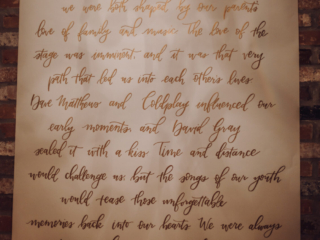 we were both shaped by our parents
love of family and music The love of the
stage was imminent. and it was that very
path that led us into each others lives
Dave Matthews and Coldplay influenced our
early moments. and David Gray
sealed it with a kiss Time and distance
would challenge us. but the songs of our youth
would tease those unforgettable
memories back into our hearts We were always